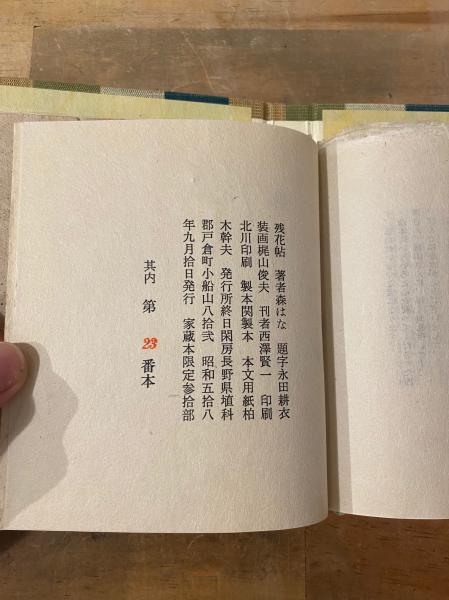 残花帖 著者森はな 題字永田耕衣
装画梶山俊夫 刊者西澤賢一 印刷
北川印刷 製本関製本 本文用紙柏
木幹夫 発行所終日閑房長野県埴科
郡戸倉町小船山八拾弐 昭和五拾八
年九月拾日発行 家蔵本限定参拾部
其内 第 23 番本